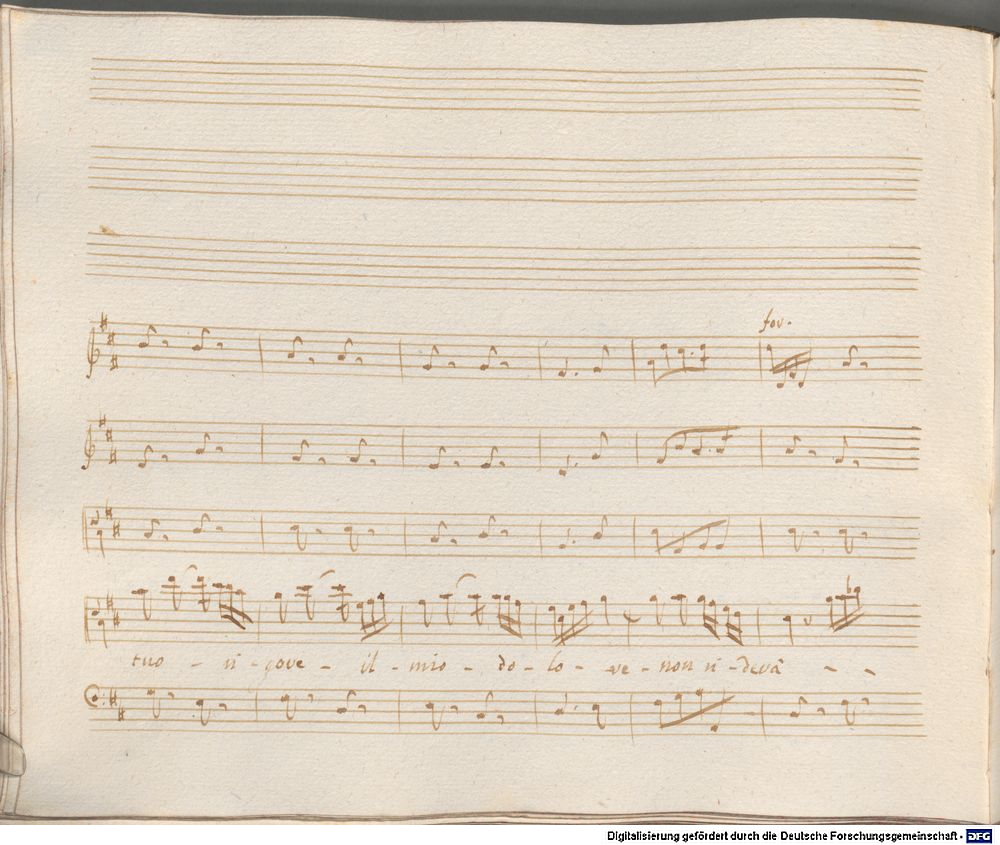 for.
tuo - ri - gore - il - mio - do - lo - re - non ri - derà - -
Digitalisierung gefördert durch die Deutsche Forschungsgemeinschaft - DFG